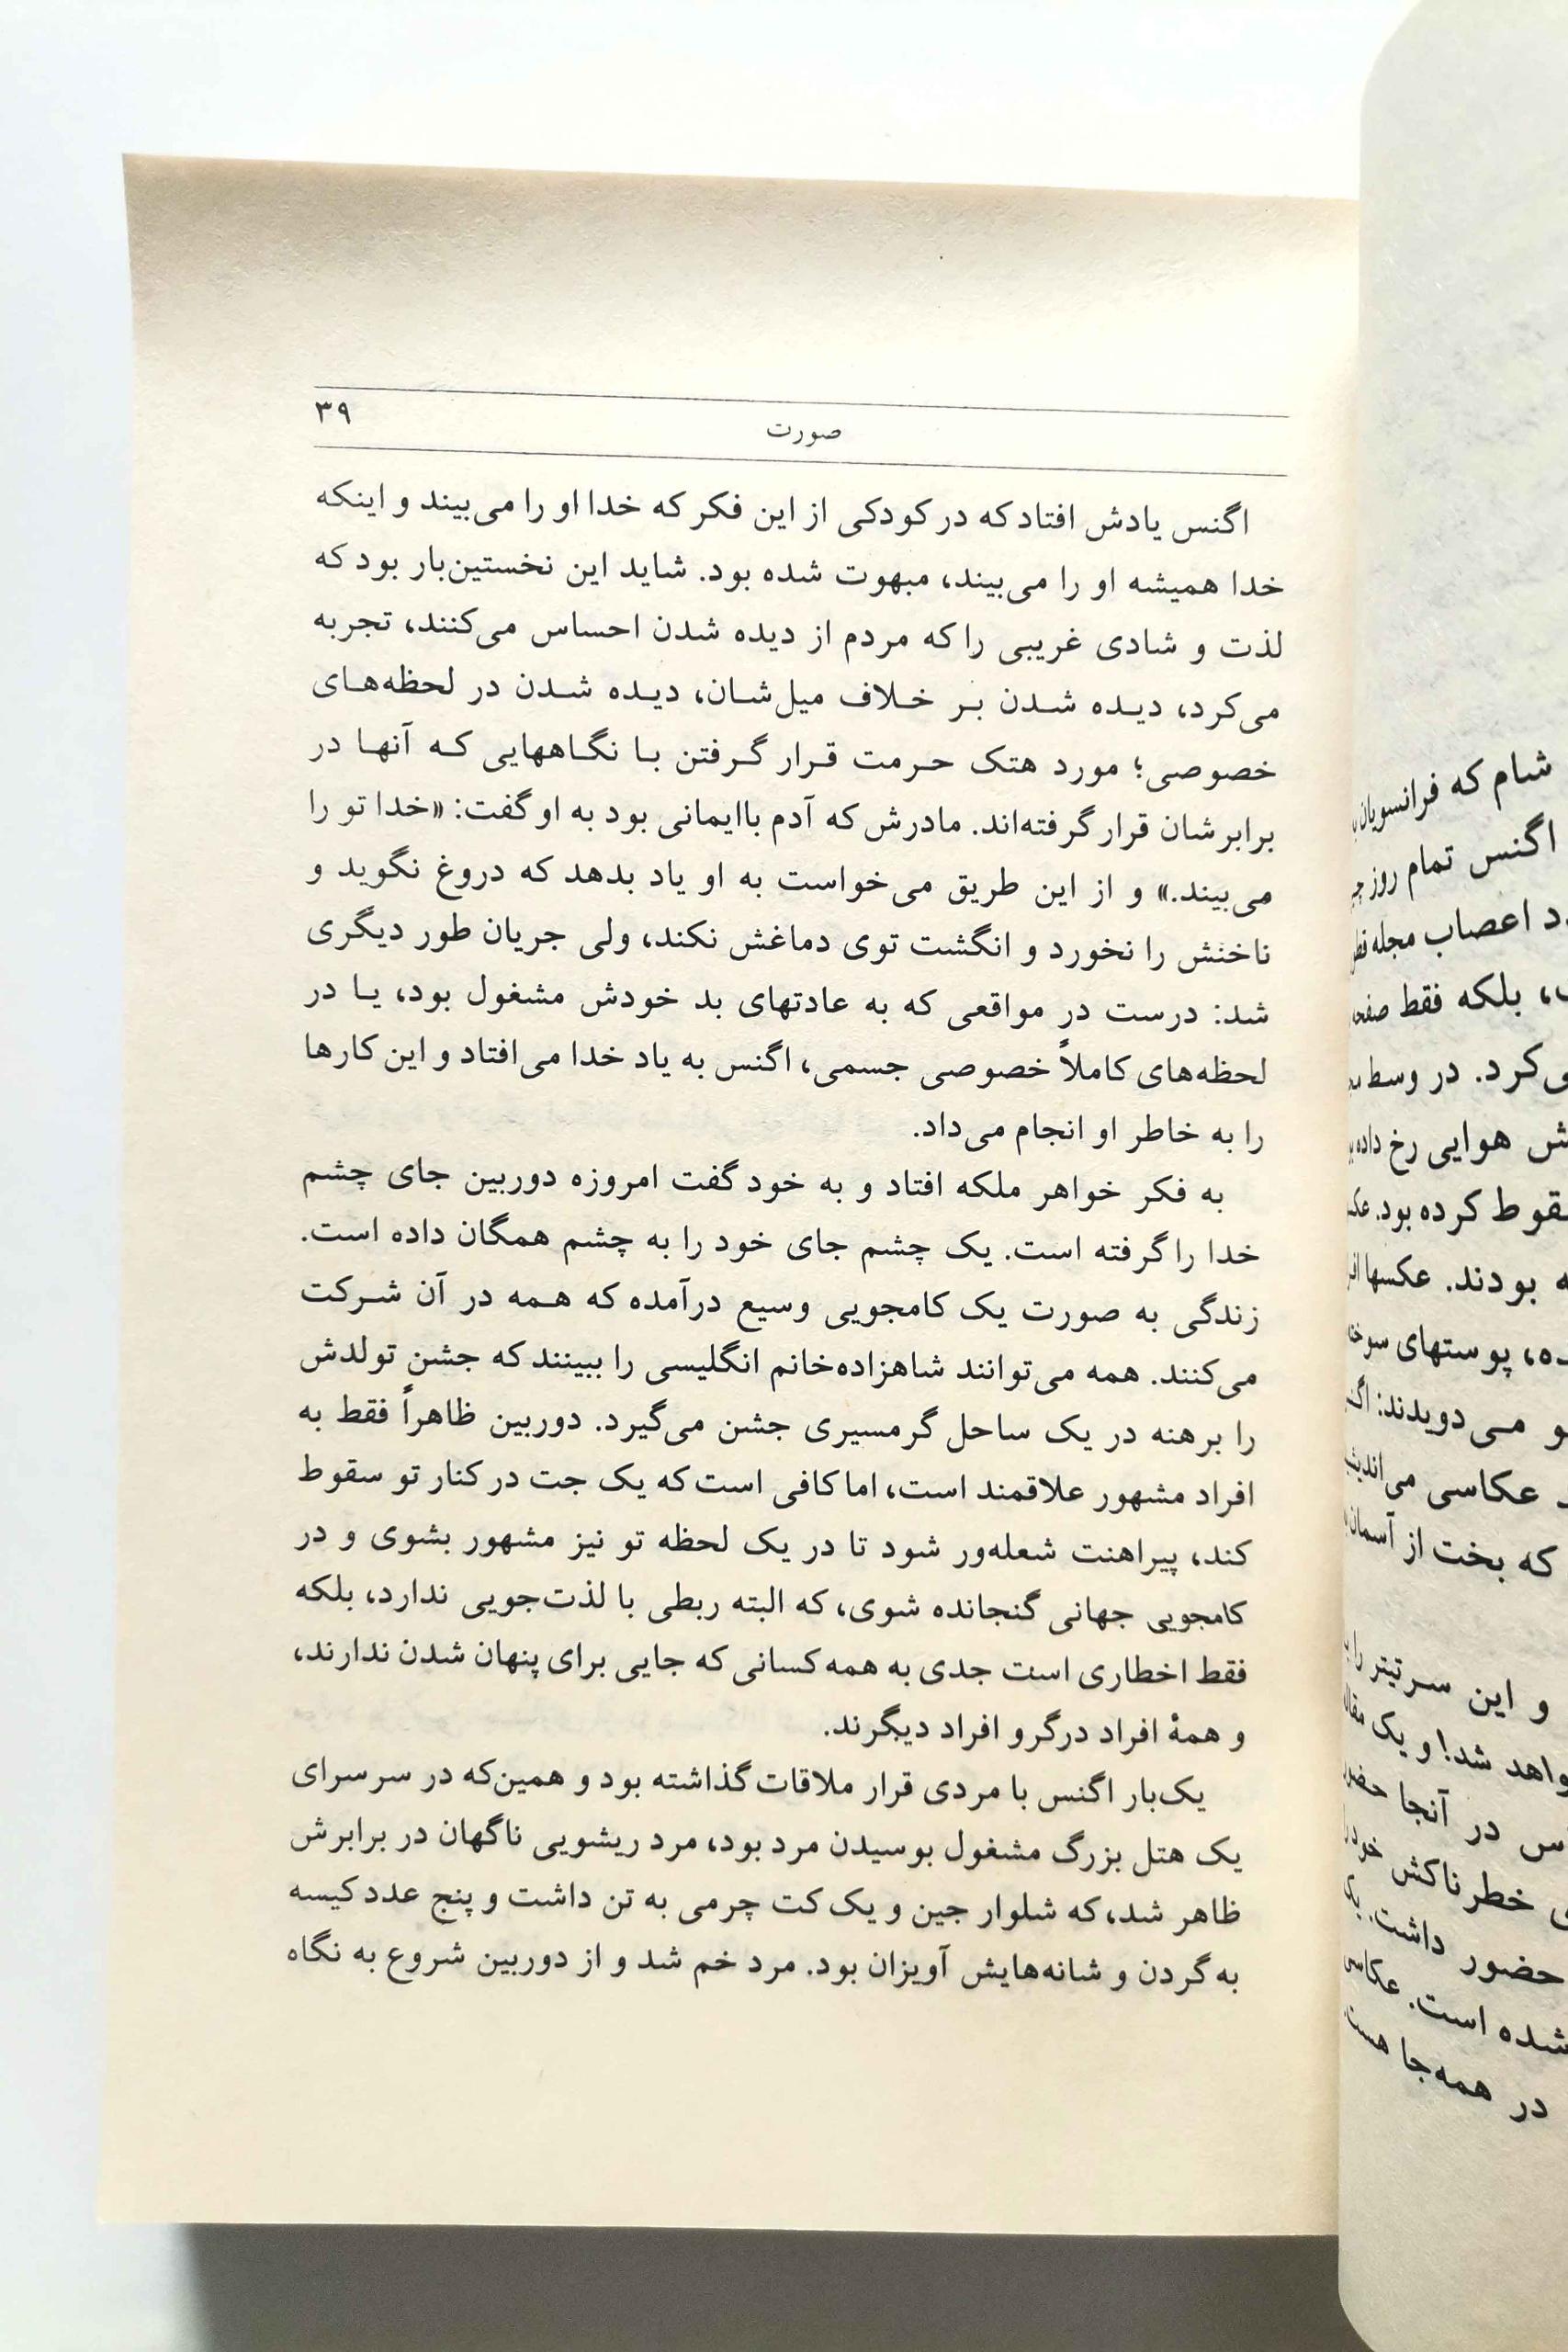 صورت
۳۹
اگنس یادش افتاد که در کودکی از این فکر که خدا او را می‌بیند و اینکه
خدا همیشه او را می‌بیند، مبهوت شده بود. شاید این نخستین‌بار بود که
لذت و شادی غریبی را که مردم از دیده شدن احساس می‌کنند، تجربه
می‌کرد، دیده شدن بر خلاف میل‌شان، دیده شدن در لحظه‌های
خصوصی؛ مورد هتک حرمت قرار گرفتن با نگاههایی که آنها در
برابرشان قرار گرفته‌اند. مادرش که آدم باایمانی بود به او گفت: «خدا تو را
می‌بیند.» و از این طریق می‌خواست به او یاد بدهد که دروغ نگوید و
ناخنش را نخورد و انگشت توی دماغش نکند، ولی جریان طور دیگری
شد: درست در مواقعی که به عادتهای بد خودش مشغول بود، یا در
لحظه‌های کاملاً خصوصی جسمی، اگنس به یاد خدا می‌افتاد و این کارها
را به خاطر او انجام می‌داد.
به فکر خواهر ملکه افتاد و به خود گفت امروزه دوربین جای چشم
خدا را گرفته است. یک چشم جای خود را به چشم همگان داده است.
زندگی به صورت یک کامجویی وسیع درآمده که همه در آن شرکت
می‌کنند. همه می‌توانند شاهزاده‌خانم انگلیسی را ببینند که جشن تولدش
را برهنه در یک ساحل گرمسیری جشن می‌گیرد. دوربین ظاهراً فقط به
افراد مشهور علاقمند است، اما کافی است که یک جت در کنار تو سقوط
کند، پیراهنت شعله‌ور شود تا در یک لحظه تو نیز مشهور بشوی و در
کامجویی جهانی گنجانده شوی، که البته ربطی با لذت‌جویی ندارد، بلکه
فقط اخطاری است جدی به همه کسانی که جایی برای پنهان شدن ندارند،
و همهٔ افراد درگرو افراد دیگرند.
یک‌بار اگنس با مردی قرار ملاقات گذاشته بود و همین‌که در سرسرای
یک هتل بزرگ مشغول بوسیدن مرد بود، مرد ریشویی ناگهان در برابرش
ظاهر شد، که شلوار جین و یک کت چرمی به تن داشت و پنج عدد کیسه
به گردن و شانه‌هایش آویزان بود. مرد خم شد و از دوربین شروع به نگاه
شام که فرانسویان
اگنس تمام روز
اعصاب مجله
بلکه فقط
می‌کرد. در وسط
هوایی رخ داده
سقوط کرده بود.
بودند. عکسها
پوستهای
می‌دویدند:
عکاسی
که بخت از آسمان
و این سرتیتر را
خواهد شد! و یک
در آنجا
خطرناکش
حضور داشت.
شده است.
در همه‌جا